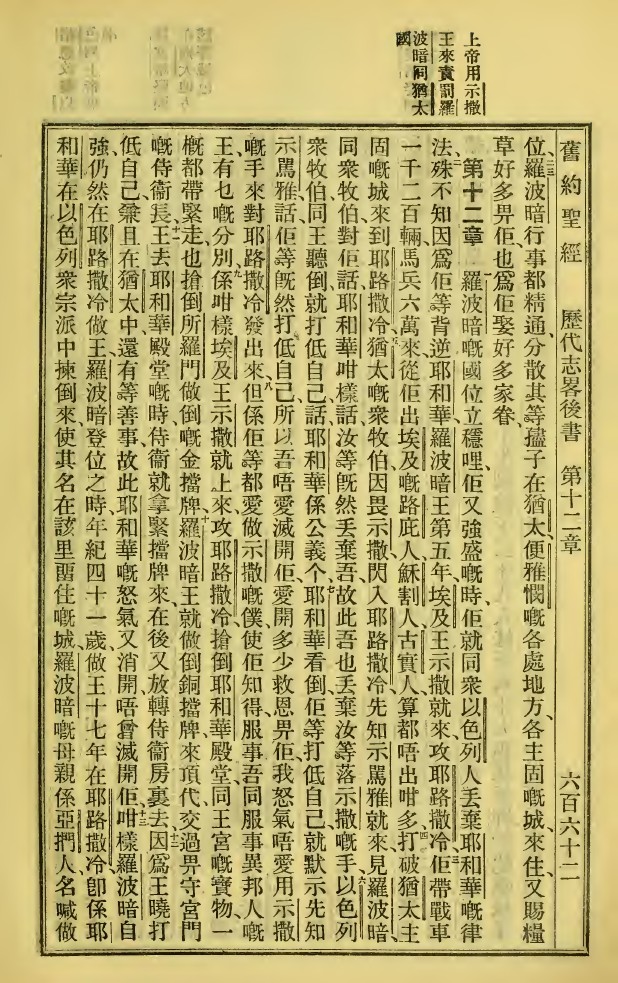 上帝用示撒
王來責罰羅
波暗同猶太
國
舊約聖經 歷代志畧後書 第十二章 六百六十二
位、二三羅波暗行事都精通分散其等孻子在猶太、便雅憫嘅各處地方、各主固嘅城來住、又賜糧
草好多畀佢、也爲佢娶好多家眷、
第十二章 一羅波暗嘅國位立穩哩、佢又強盛嘅時、佢就同衆以色列人丟棄耶和華嘅律
法、二殊不知因爲佢等背逆耶和華、羅波暗王第五年、埃及王示撒就來攻耶路撒冷、三佢帶戰車
一千二百輛、馬兵六萬來、從佢出埃及嘅路庇人、穌割人、古實人、算都唔出咁多、四打破猶太主
固嘅城來到耶路撒冷、五猶太嘅衆牧伯因畏示撒閃入耶路撒冷、先知示罵雅就來見羅波暗、
同衆牧伯、對佢話、耶和華咁樣話、汝等旣然丟棄吾、故此吾也丟棄汝等落示撒嘅手、六以色列
衆牧伯同王聽倒、就打低自己、話、耶和華係公義个、七耶和華看倒佢等打低自己、就默示先知
示罵雅話、佢等旣然打低自己、所以吾唔愛滅開佢、愛開多少救恩畀佢、我怒氣唔愛用示撒
嘅手來對耶路撒冷發出來、八但係佢等都愛做示撒嘅僕、使佢知得服事吾、同服事異邦人嘅
王有乜嘅分別、九係咁樣埃及王示撒就上來攻耶路撒冷、搶倒耶和華殿堂、同王宮嘅寶物、一
概都帶緊走、也搶倒所羅門做倒嘅金擋牌、十羅波暗王就做倒銅擋牌來頂代、交過畀守宮門
嘅侍衞長、十一王去耶和華殿堂嘅時、侍衞就拿緊擋牌來、在後又放轉侍衞房裏去、十二因爲王曉打
低自己、兼且在猶太中還有等善事、故此耶和華嘅怒氣又消開、唔曾滅開佢、十三咁樣羅波暗自
強、仍然在耶路撒冷做王、羅波暗登位之時、年紀四十一歲、做王十七年、在耶路撒冷、卽係耶
和華在以色列衆宗派中揀倒來、使其名在該里畱住嘅城、羅波暗嘅母親係亞捫人、名喊做